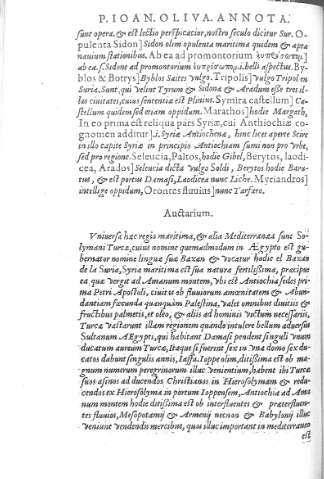 P. IOAN. OLIVA. ANNOTA.
sunt opera, & est lectio perspicatior, nostro seculo dicitur Sur. O-
pulenta Sidon] Sidon olim opulenta maritima quidem & apta
nauium stationibus. Ab ea ad promontorium
ab ea .s. Sidone ad promontorium .i. belli aspectus. By-
blos & Botrys] Byblos Saites vulgo. Tripolis] vulgo Tripol en
Suria. Sunt, qui velint Tyrum & Sidona & Aradum esse tres il-
las ciuitates, cuius sententia est Plinius. Symira castellum] Ca-
stellum quidem sed etiam oppidum. Marathos] hodie Margath,
In eo prima est reliqua pars Syriæ, cui Anthiochiæ co-
gnomen additur] .i. Syria Antiochena, hinc licet aperte scire
in illo capite Syria in principio Antiochiam sumi non pro vrbe,
sed pro regione. Seleucia, Paltos, hodie Gibel, Berytos, laodi-
cea, Arados] Seleucia dicta vulgo Soldi, Berytos hodie Baru-
tus, & est portus Damasi, Laodicea nunc Liche. Myriandros]
intellige oppidum, Orontes fluuius] nunc Tarfaro.
Auctarium.
Vniuersa hæc regio maritima, & alia Mediterranea sunt So-
lymani Turcæ, cuius nomine quemadmodum in Ægypto est gu-
bernator nomine lingua sua Baxan & vocatur hodie el Baxan
de la Suria, Syria maritima est sua natura fertilissima, præcipue
ea, quæ vergit ad Amanum montem, vbi est Antiochia sedes pri-
ma Petri Apostoli, ciuitas ob fluuiorum amœnitatem & Abun-
dantiam fæcunda quanquam Palestina, valet omnibus diuitiis &
fructibus palmetis, et oleo, & aliis ad hominis victum necessariis,
Turcæ vastarunt illam regionem quando intulere bellum aduersus
Sultanum AEgypti, qui habitant Damasi pendent singuli vnum
ducatum aureum Turcæ, itaque si fuerint sex in vna domo sex du-
catos dabunt singulis annis, Iaffa .s. Ioppe olim, ditissima est ob ma-
gnum numerum peregrinorum illuc venientium, habent ibi Turcæ
suos asinos ad ducendos Christianos in Hierosolymam & redu-
cendos ex Hierosolyma in portum Ioppensem, Antiochia ad Ama
num montem hodie ditissima est ob interfluentes & præterfluen-
tes fluuios, Mesopotamij & Armenij necnon & Babylonij illuc
veniunt vendendis mercibus, quos illuc important in mediterraneo
est